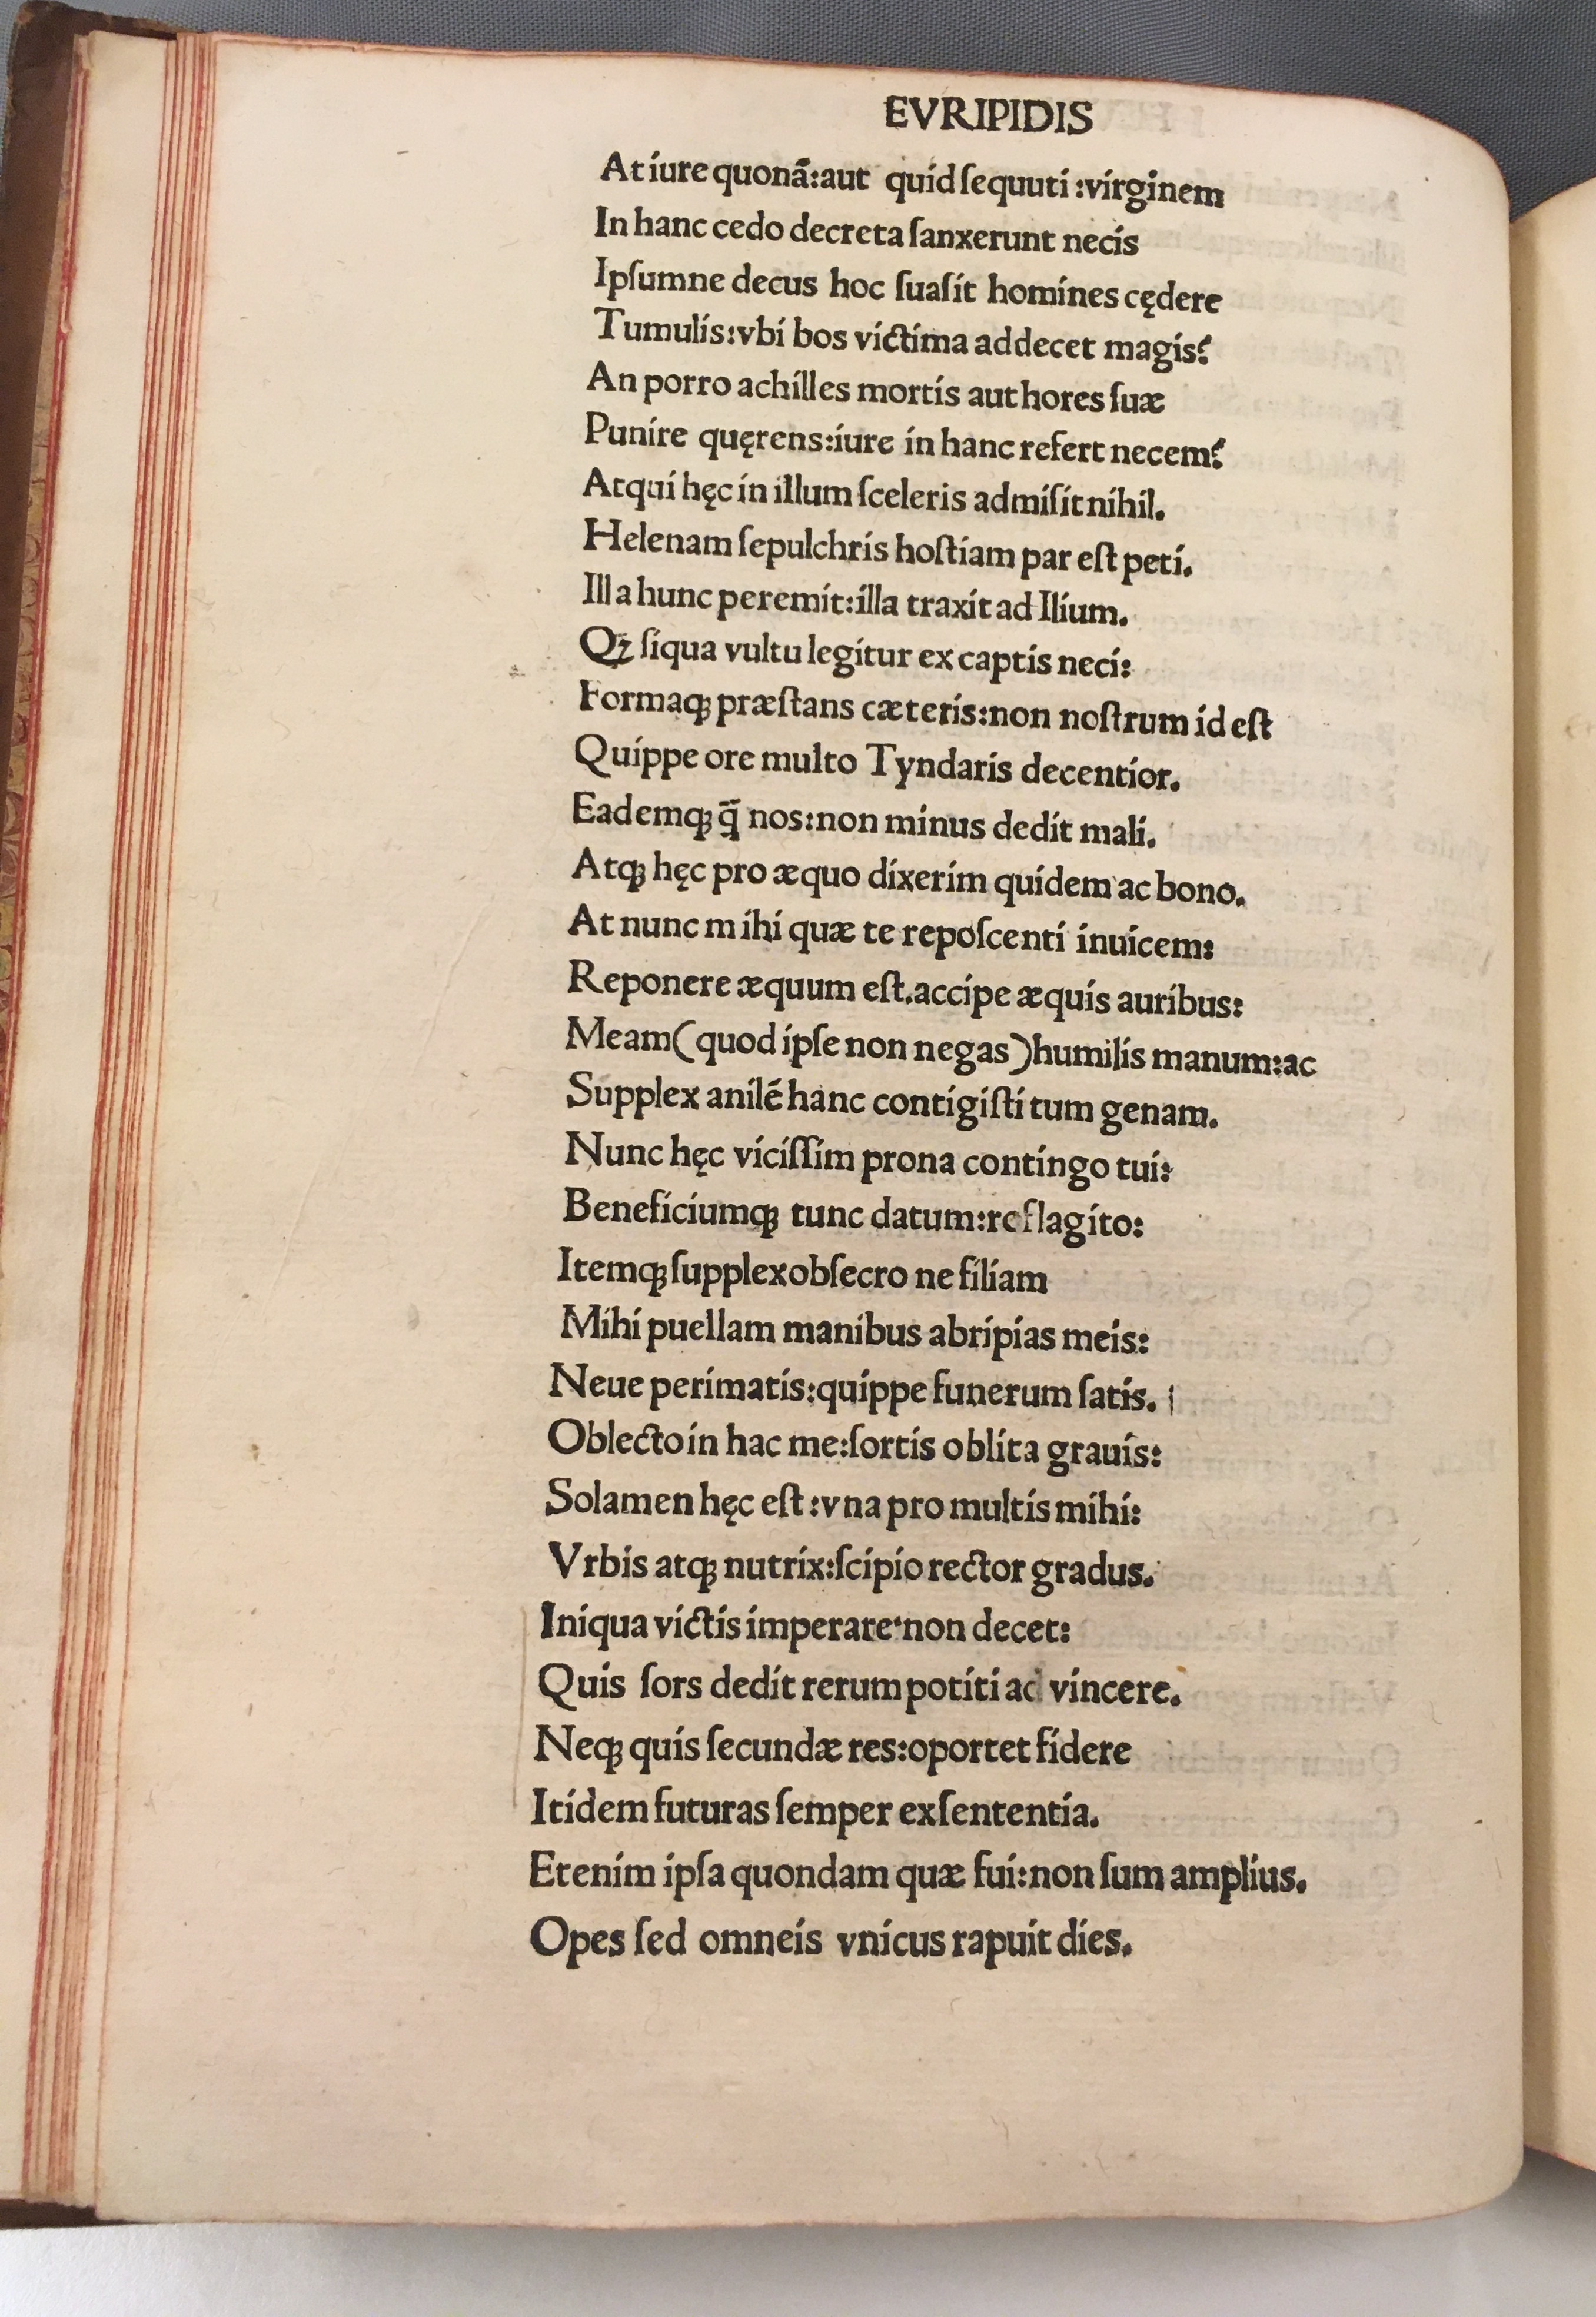 EVRIPIDIS
At iure quonã:aut quid ſequuti :virginem
In hanc cedo decreta ſanxerunt necis
Ipſumne decus hoc ſuaſit homines cędere
Tumulis:vbi bos victima addecet magis?
An porro achilles mortis authores ſuæ
Punire quęrens:iure in hanc refert necem?
Atqui hęc in illum ſceleris admiſit nihil.
Helenam ſepulchris hoſtiam par eſt peti.
Illa hunc peremit:illa traxit ad Ilium.
Qꝫ ſiqua vultu legitur ex captis neci:
Formaqꝫ præſtans cæteris:non noſtrum id eſt
Quippe ore multo Tyndaris decentior.
Eademqꝫ q̃ nos:non minus dedit mali.
Atqꝫ hęc pro æquo dixerim quidem ac bono.
At nunc mihi quæ te repoſcenti inuicem:
Reponere æquum eſt.accipe æquis auribus:
Meam(quod ipſe non negas)humilis manum:ac
Supplex anilẽ hanc contigiſti tum genam.
Nunc hęc viciſſim prona contingo tui:
Beneficiumqꝫ tunc datum:reflagito:
Itemqꝫ ſupplex obſecro ne filiam
Mihi puellam manibus abripias meis:
Neue perimatis:quippe funerum ſatis.
Oblecto in hac me:ſortis oblita grauis:
Solamen hęc eſt :vna pro multis mihi:
Vrbis atqꝫ nutrix:ſcipio rector gradus.
Iniqua victis imperare·non decet:
Quis ſors dedit rerum potiti ac vincere.
Neqꝫ quis ſecundæ res:oportet fidere
Itidem futuras ſemper exſententia.
Etenim ipſa quondam quæ fui:non ſum amplius.
Opes ſed omneis vnicus rapuit dies.